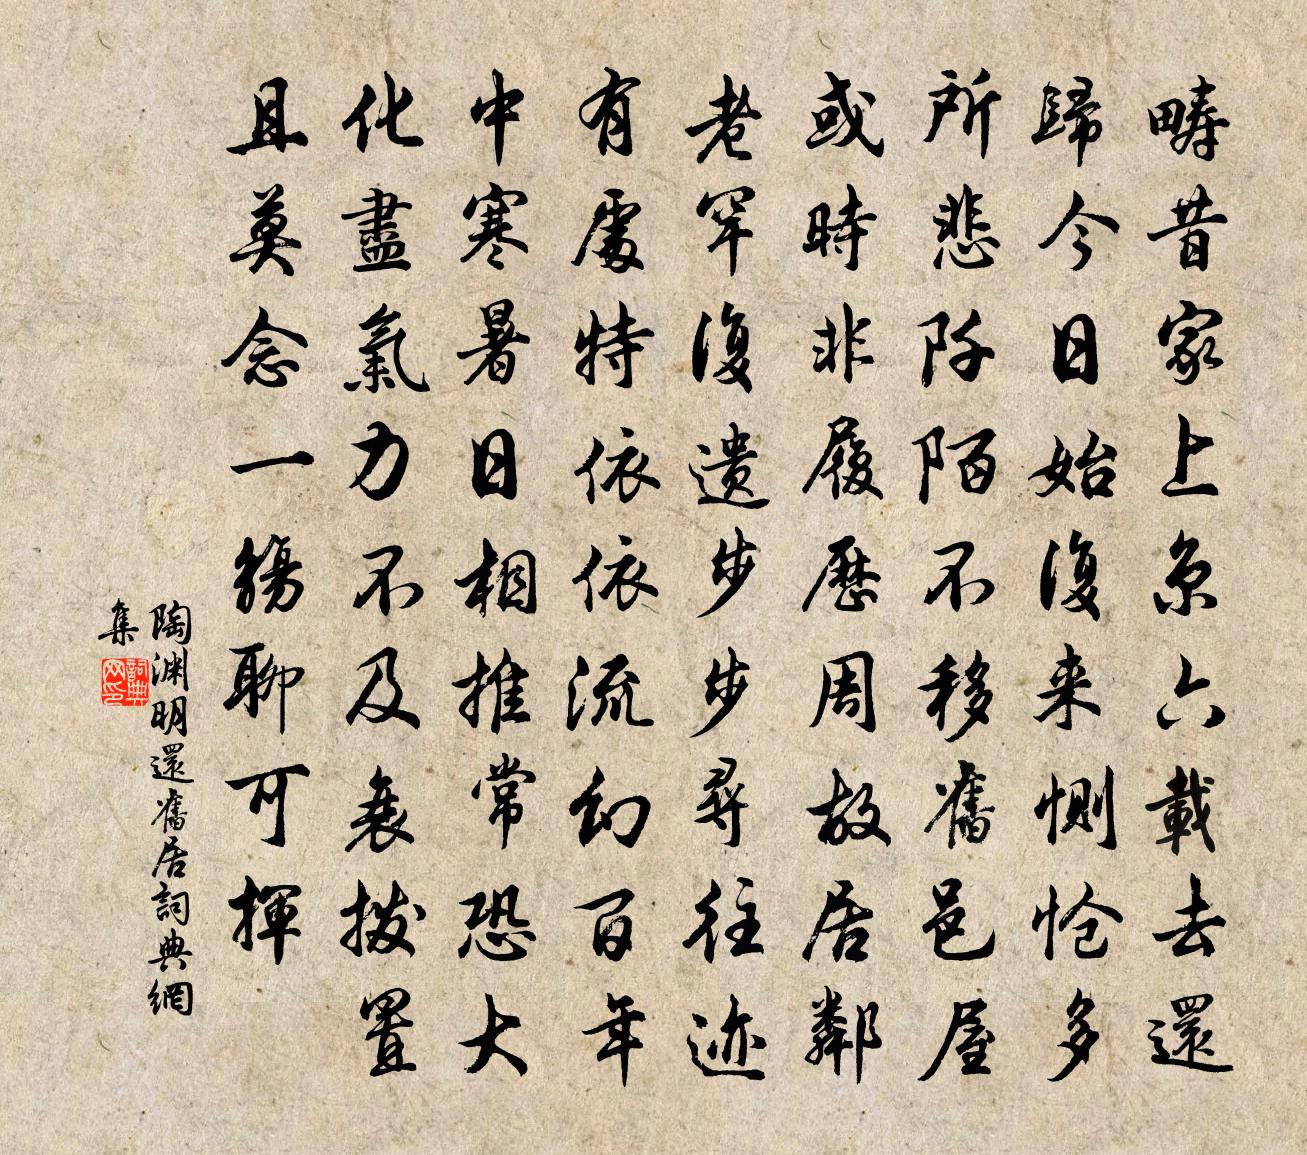 疇昔家上京六載去還
歸今日始復来惻愴多
所悲阡陌不移舊邑屋
或時非履歷周故居鄰
老罕復遺步步尋往迹
有處特依依流幻百年
中寒暑日相推常恐大
化盡氣力不及衰撥置
且莫念一觴聊可揮
陶渊明還舊居詞典網
集
詞典
网印